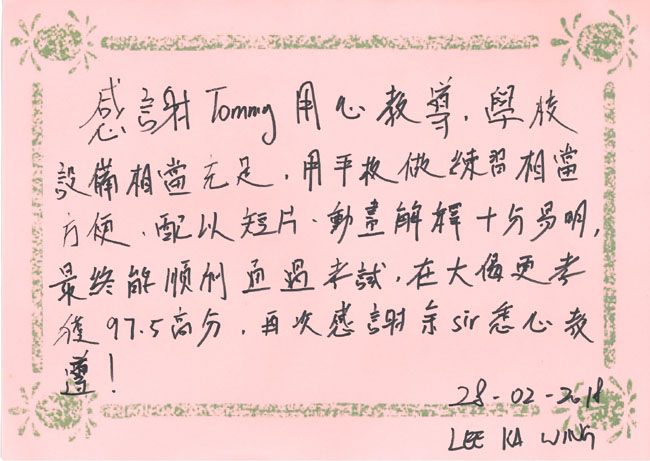 感謝Tommy用心教導,學校
設備相當充足,用平板做練習相當
方便,配以短片、動畫解釋十分易明,
最終能順利通過考試,在大偈更考
獲97.5高分,再次感謝余sir悉心教
導!
28-02-2018
LEE KA WING